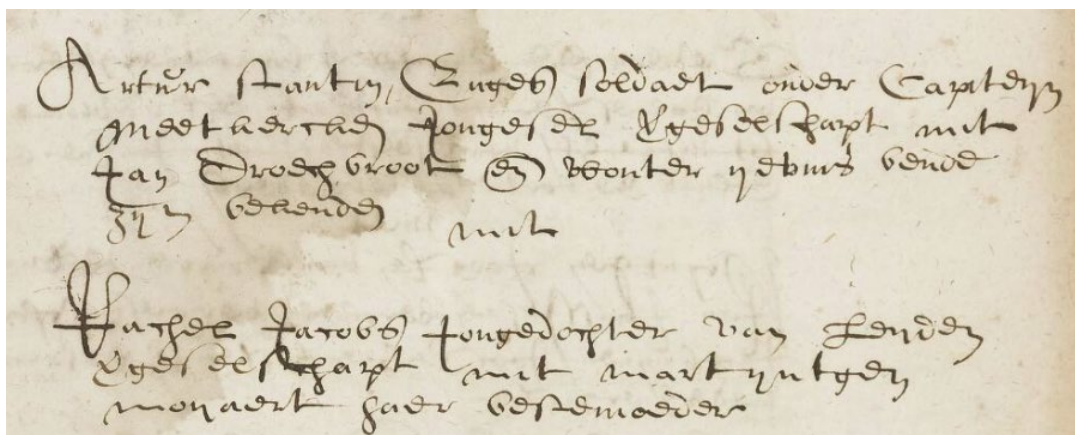 Artur stantin, Enges soldaet onder Capiteyn
Meetkercken Jongesel Vgeselschapt mit
Jan Droochbroot en Wouter bende
zijn bekenden
mit
Rachel Jacobs Jongedochter van Leyden
Vgeselschapt mit martijntgen
monaert haer bestemoeder